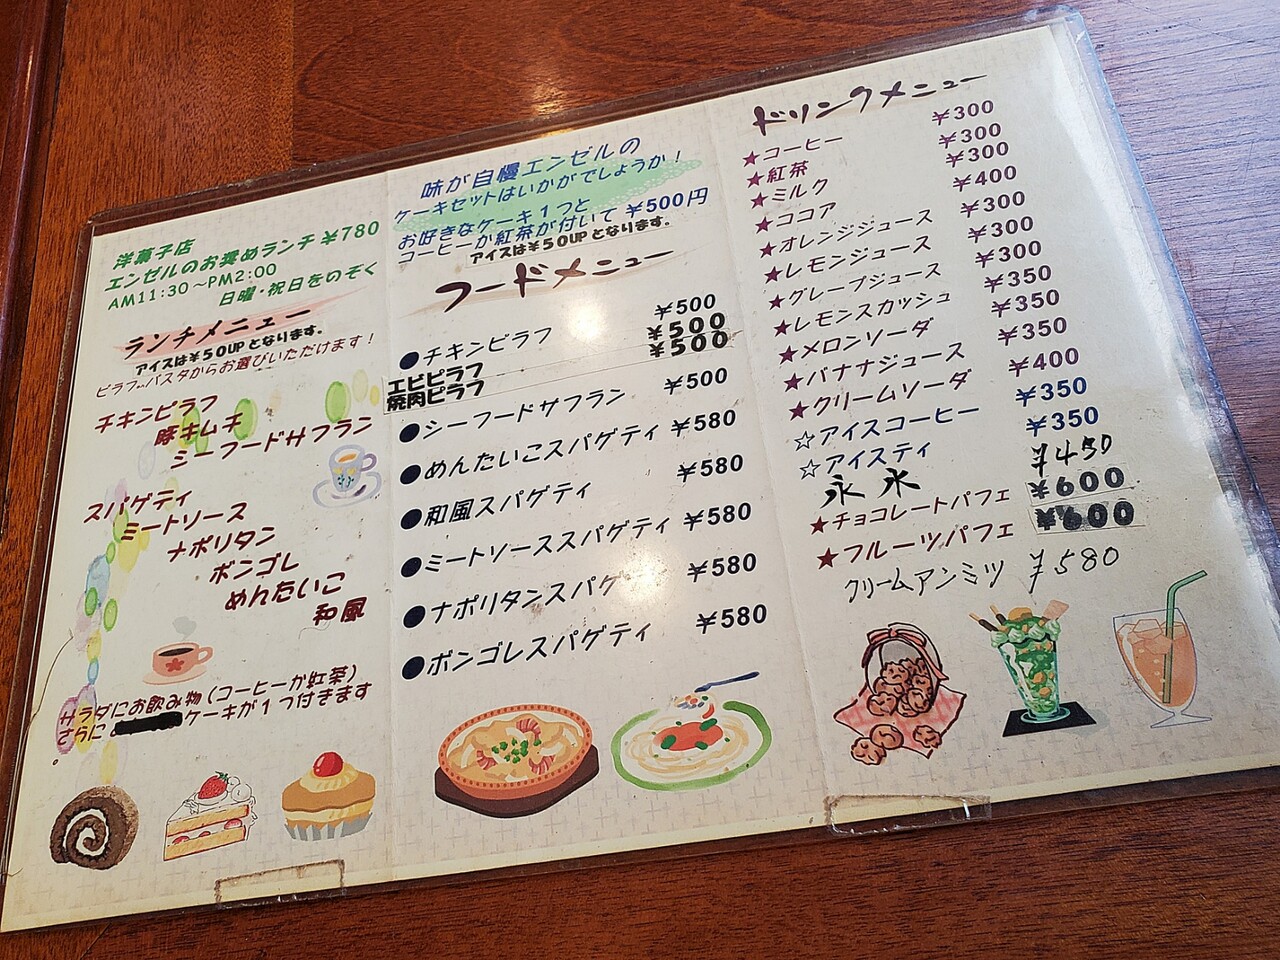 洋菓子店
エンゼルのお奨めランチ ¥780
AM11:30～PM2:00
日曜・祝日をのぞく
ランチメニュー
アイスは¥50UPとなります。
ピラフかパスタからお選びいただけます！
チキンピラフ
豚キムチ
シーフードサフラン
スパゲティ
ミートソース
ナポリタン
ボンゴレ
めんたいこ
和風
サラダにお飲み物（コーヒーか紅茶）
さらに ケーキが1つ付きます
味が自慢エンゼルの
ケーキセットはいかがでしょうか！
お好きなケーキ1つと
コーヒーか紅茶が付いて ¥500円
アイスは¥50UPとなります。
フードメニュー
●チキンピラフ ¥500
エビピラフ ¥500
焼肉ピラフ ¥500
●シーフードサフラン ¥500
●めんたいこスパゲティ ¥580
●和風スパゲティ ¥580
●ミートソーススパゲティ ¥580
●ナポリタンスパゲ ¥580
●ボンゴレスパゲティ ¥580
ドリンクメニュー
★コーヒー ¥300
★紅茶 ¥300
★ミルク ¥300
★ココア ¥400
★オレンジジュース ¥300
★レモンジュース ¥300
★グレープジュース ¥300
★レモンスカッシュ ¥350
★メロンソーダ ¥350
★バナナジュース ¥350
★クリームソーダ ¥400
☆アイスコーヒー ¥350
☆アイスティ ¥350
氷 ¥450
★チョコレートパフェ ¥600
★フルーツパフェ ¥600
クリームアンミツ ¥580